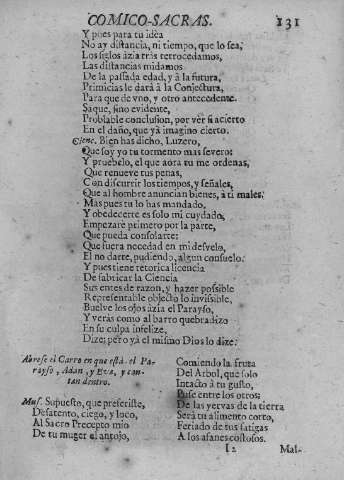 COMICO-SACRAS. 131
Y pues para tu idèa
No ay distancia, ni tiempo, que lo sea,
Los siglos àzia tràs retrocedamos,
Las distancias midamos
De la passada edad, y à la futura,
Primicias le darà à la Conjectura,
Para que de vno, y otro antecedente
Saque, sino evidente,
Problable conclusion, por vèr si acierto
En el daño, que yà imagino cierto.
Cienc. Bien has dicho, Luzero,
Que soy yo tu tormento mas severo:
Y pruebelo, el que aora tu me ordenas,
Que renueve tus penas,
Con discurrir los tiempos, y señales,
Que al hombre anuncian bienes, à ti males:
Mas pues tu lo has mandado,
Y obedecerte es solo mi cuydado,
Empezarè primero por la parte,
Que pueda consolarte:
Que fuera necedad en mi desvelo,
El no darte, pudiendo, algun consuelo.
Y pues tiene retorica licencia
De fabricar la Ciencia
Sus entes de razon, y hazer possible
Representable objecto lo invisible,
Buelve los ojos àzia el Parayso,
Y veràs como al barro quebradizo
En su culpa infelize,
Dize; pero yà el mismo Dios lo dize:
Abrese el Carro en que està el Parayso,
Adan, y Eva, y cantan
dentro.
Mus. Supuesto, que preferiste,
Desatento, ciego, y loco,
Al Sacro Precepto mio
De tu muger el antojo,
Comiendo la fruta
Del Arbol, que solo
Intacto à tu gusto,
Puse entre los otros:
De las yervas de la tierra
Serà tu alimento corto,
Feriado de tus fatigas
A los afanes costosos.
I2 Mal-